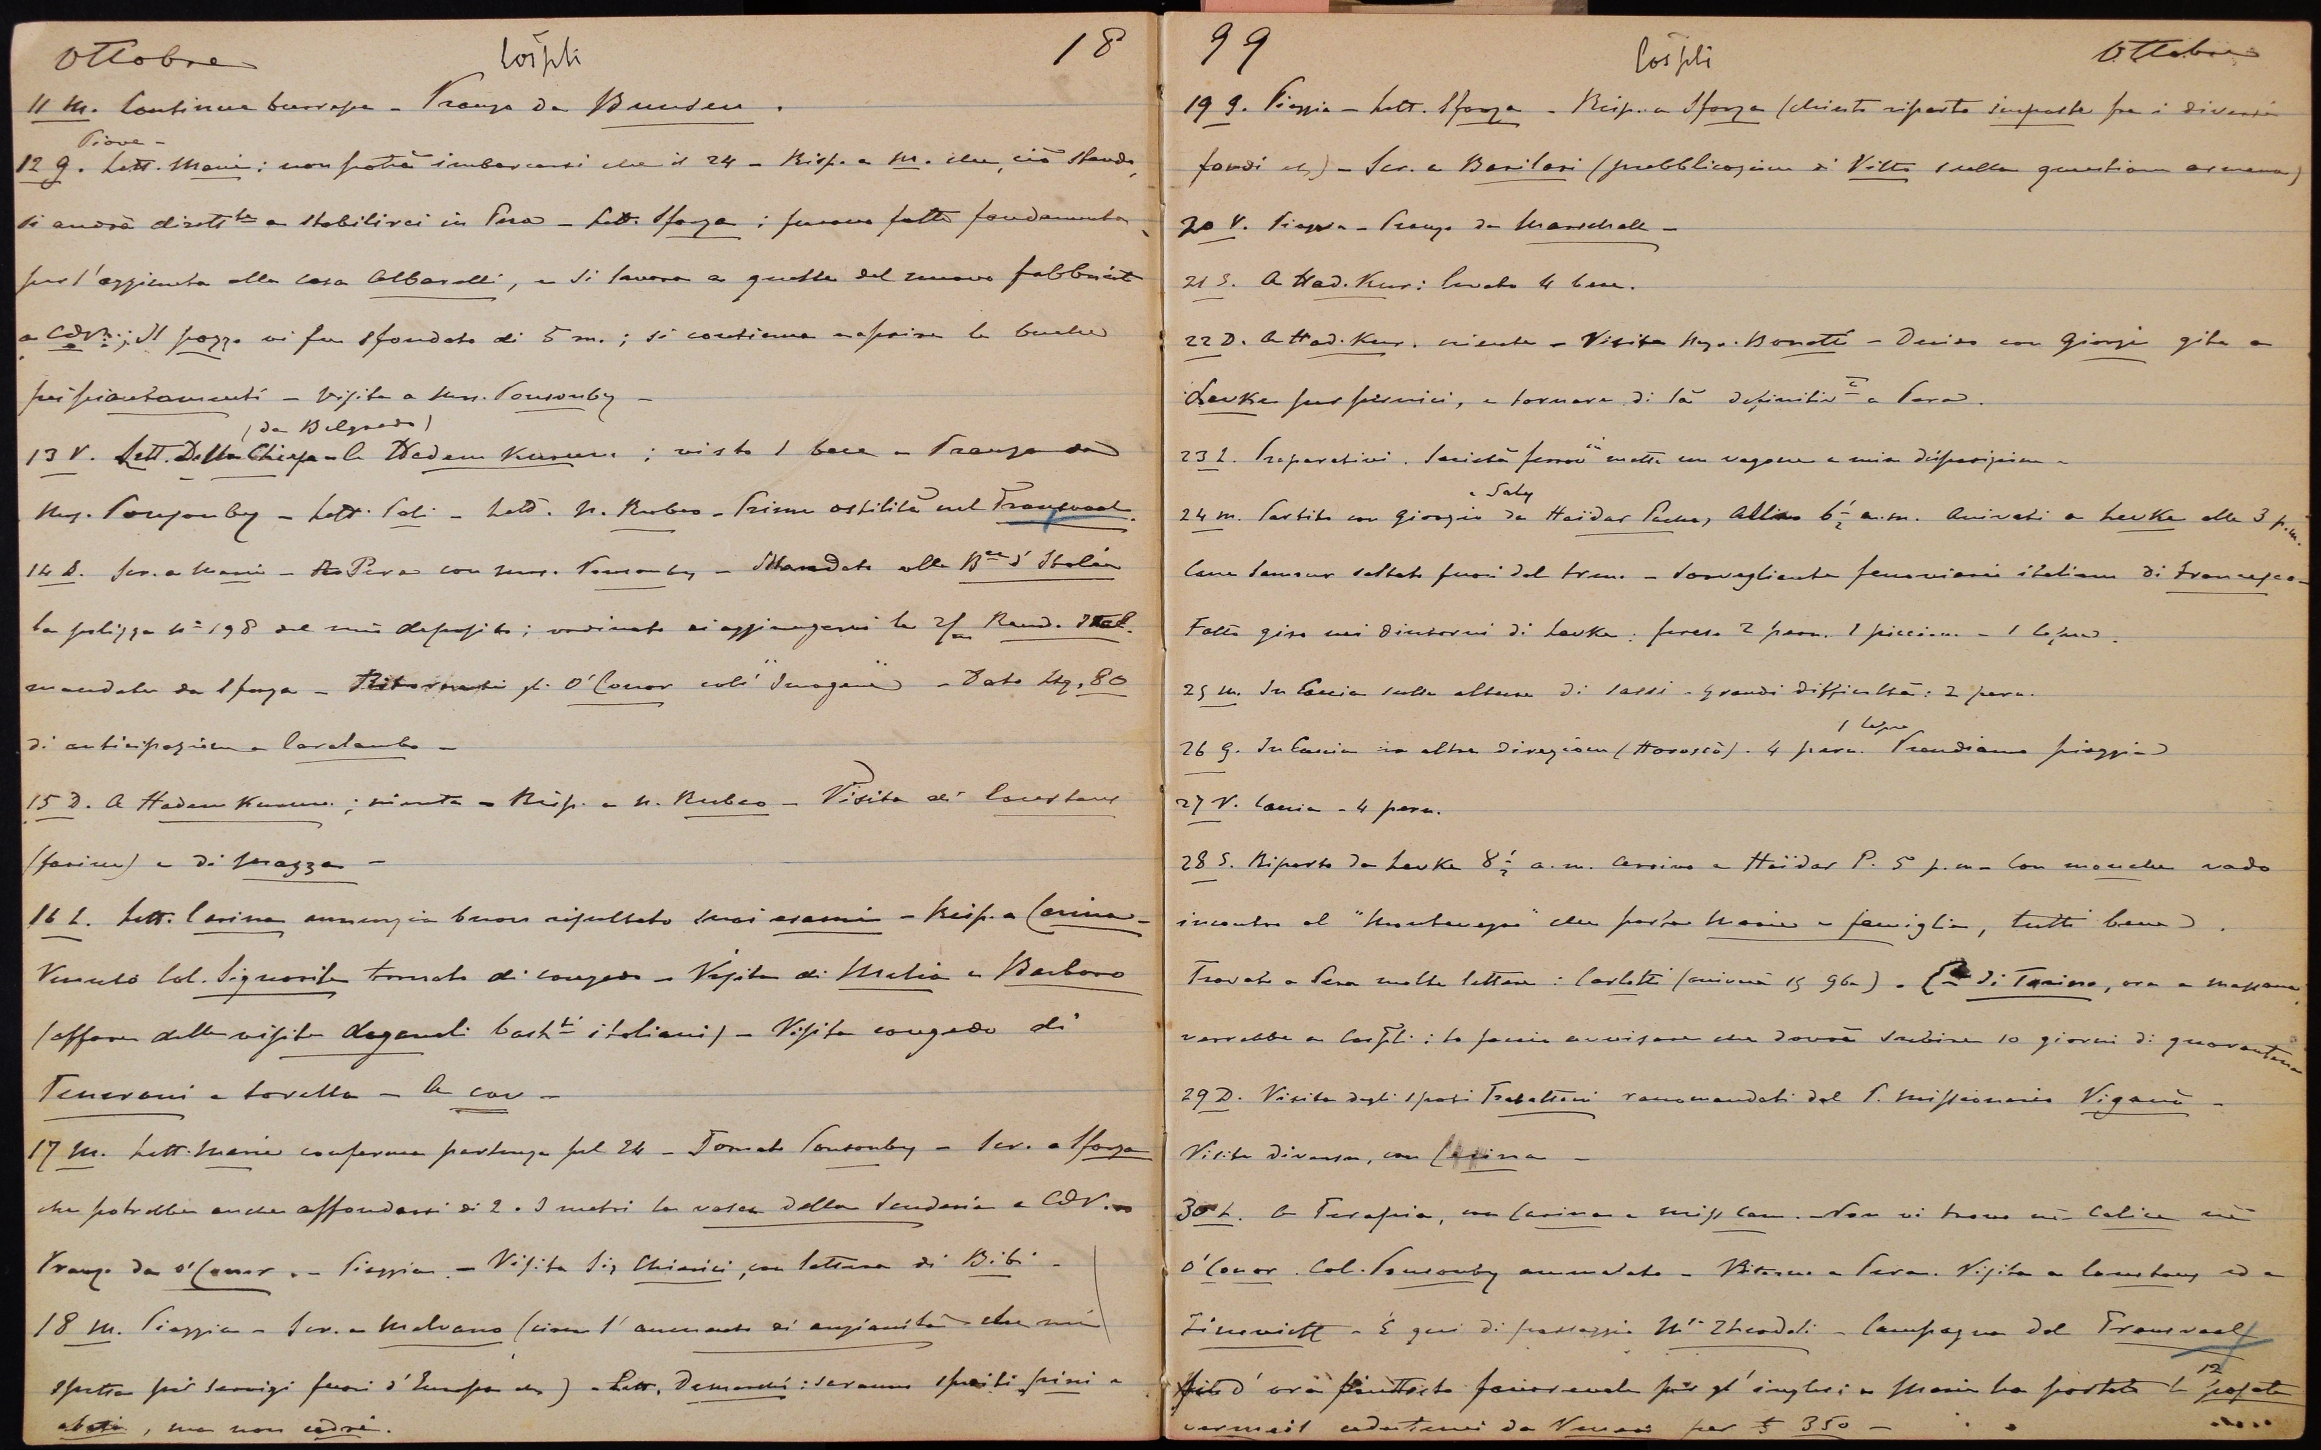 Ottobre Cospli 18
11 M. Continua burrasca - Pranzo da Bunsen.
Piove -
12 G. Lett. Maria: non potrà imbarcarsi che il 24 - Risp. a M. che, ciò stando,
si andrà dirett.te a stabilirci in Pera - Lett. Sforza: furono fatte fondamenta
per l'aggiunta alla casa Albarelli, e si lavora a quelle del nuovo fabbricato
a CdV.; Il pozzo vi fu sfondato di 5 m.; si continua a aprire le buche
pei piantamenti - Visita a Mrs. Ponsonby -
(da Belgrado)
13 V. Lett. Della Chiesa - A Hadem Kuram; visto 1 becc. - Pranzo da
Mrs. Ponsonby - Lett. Poli - Lett. N. Rubeo - Prime ostilità nel Transvaal.
14 S. Scr. a Maria - A Pera con Mrs. Ponsonby - Mandato alla B.ca d'Italia
la polizza N° 198 del mio deposito; ordinato di aggiungervi le Rend. Ital.
mandate da Sforza - Ritornati gli O'Conor coll' "Imogene" - Dato 80
di anticipazione a Caralambo -
15 D. A Hadem Kuram; niente - Risp. a N. Rubeo - Visita di Constans
(farine) e di Mazza -
16 L. Lett. Carina annunzia buon risultato suoi esami - Risp. a Carina -
Venuto Col. Signorile tornato di congedo - Visita di Melia e Barbaro
(affare delle visite doganali bast.ti italiani) - Visita congedo di
Tenerani e sorella - A cav -
17 M. Lett. Maria conferma partenza pel 24 - Tornato Ponsonby - Scr. a Sforza
che potrebbe anche affondarsi di 2 o 3 metri la vasca della Scuderia a CdV. -
Pranzo da O'Conor. - Pioggia. - Visita Sig. Chierici, con lettera di Bibi -
18 M. Pioggia - Scr. a Malvano (circa l'aumento di anzianità che mi
spetta per servizi fuori d'Europa etc) - Lett. Demarchi: saranno spediti pini e
abeti, ma non cedri.
99 Cospli Ottobre
19 G. Pioggia - Lett. Sforza - Risp. a Sforza (chiesto riparto imposte fra i diversi
fondi etc) - Scr. a Barilari (pubblicazione di Vitto sulla questione armena)
20 V. Pioggia - Pranzo da Marschall -
21 S. A Had. Kur: levate 4 becc.
22 D. A Had. Kur. niente - Visita Mgr. Bonetti - Deciso con Giorgio gita a
Levke per pernici, e tornare di là definitiv.te a Pera.
23 L. Preparativi. Società ferrov.ia mette un vagone a mia disposizione -
e Saly
24 M. Partito con Giorgio da Haïdar Pacha, alle 6 ½ a.m. Arrivati a Levke alle 3 p.m.
Cane saltato fuori dal treno - Sorvegliante ferroviario italiano di Francesco -
Fatto giro nei dintorni di Levke: prese 2 pern. 1 piccione - 1 lepre.
25 M. In Caccia sulle alture di sassi - grandi difficoltà: 2 pern.
1 lepre
26 G. In Caccia in altra direzione. 4 pern. Prendiamo pioggia
27 V. Caccia - 4 pern.
28 S. Riparto da Levke 8 ½ a.m. Arrivo a Haïdar P. 5 p.m. - Con mouche vado
incontro al "Montenegro" che porta Maria e famiglia, tutti bene.
Trovate a Pera molte lettere: Carlotti (arriverà 15 9bre) - di Torino, ora a Massaua,
verrebbe a Cospli: lo faccio avvisare che dovrà subire 10 giorni di quarantena
29 D. Visita degli sposi Trabattoni raccomandati dal P. Missionario Viganò -
Visite diverse, con Carina -
30 L. A Terapia, con Carina e Miss Cam. - Non vi trovo nè Calice nè
O'Conor. Col. Ponsonby ammalato - Ritorno a Pera. Visita a Constans ed a
Zinovieff - È qui di passaggio M.se Theodoli - Campagna del Transvaal
fin d'ora piuttosto favorevole per gl'inglesi - Maria ha portato le 12 posate
vermeil cedutemi da per 350 -